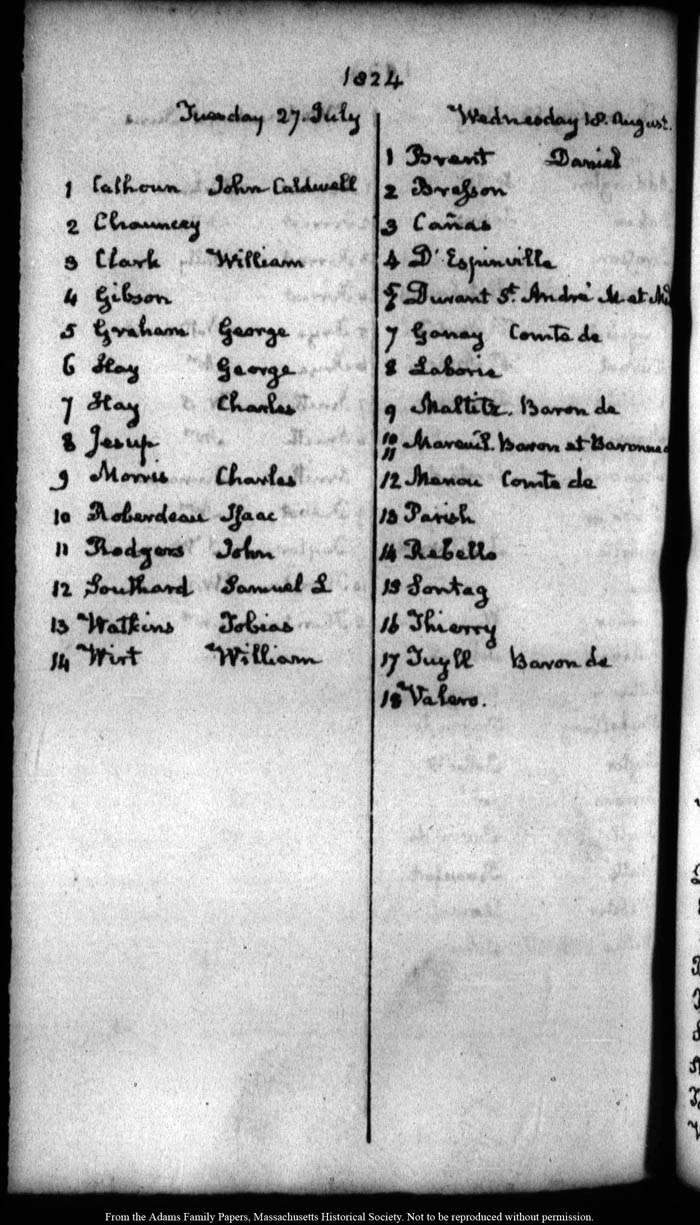 1824
Tuesday 27. July
1 Calhoun John Caldwell
2 Chauncey
3 Clark William
4 Gibson
5 Graham George
6 Hay George
7 Hay Charles
8 Jesup
9 Morris Charles
10 Roberdeau Isaac
11 Rodgers John
12 Southard Samuel L
13 Watkins Tobias
14 Wirt William
Wednesday 18. August.
1 Brent Daniel
2 Bresson
3 Cañas
4 D'Espinville
5 6 Durant St. André M. et
7 Ganay Comte de
8 Laborie
9 Maltitz. Baron de
10 11 Mareuil. Baron et Baronne
12 Menou Comte de
13 Parish
14 Rebello
15 Sontag
16 Thierry
17 Tuyll Baron de
18 Valero.
From the Adams Family Papers, Massachusetts Historical Society. Not to be reproduced without permission.